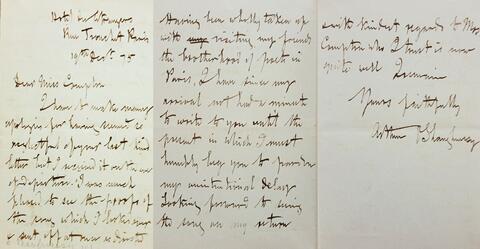 Hotel
Rue Tronchet Paris
19th Decr. 75
Dear Miss Compton
I have to make many
apologies for having seemed so
neglectful of your last kind
letter but I received it on the eve
of departure. I was much
pleased to see the proofs of
the song which I looked over
& sent off at once
Having been wholly taken up
with visiting my friends
the brotherhood of poets in
Paris, I have since my
arrival not had a moment
to write to you until the
present in which I must
humbly beg you to pardon
my unintentional delay
Looking forward to seeing
the song on my return
with kindest regards to Mrs
Compton who I trust is now
quite well I remain
Yours faithfully
Arthur O'Shaughnessy